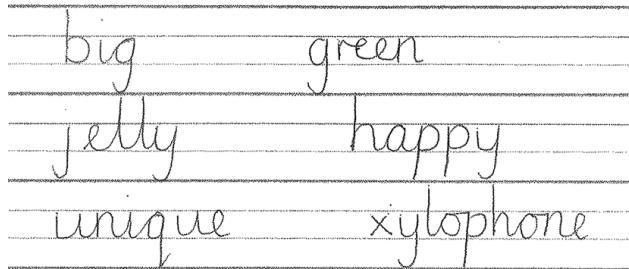 big green
jelly happy
unique xylophone